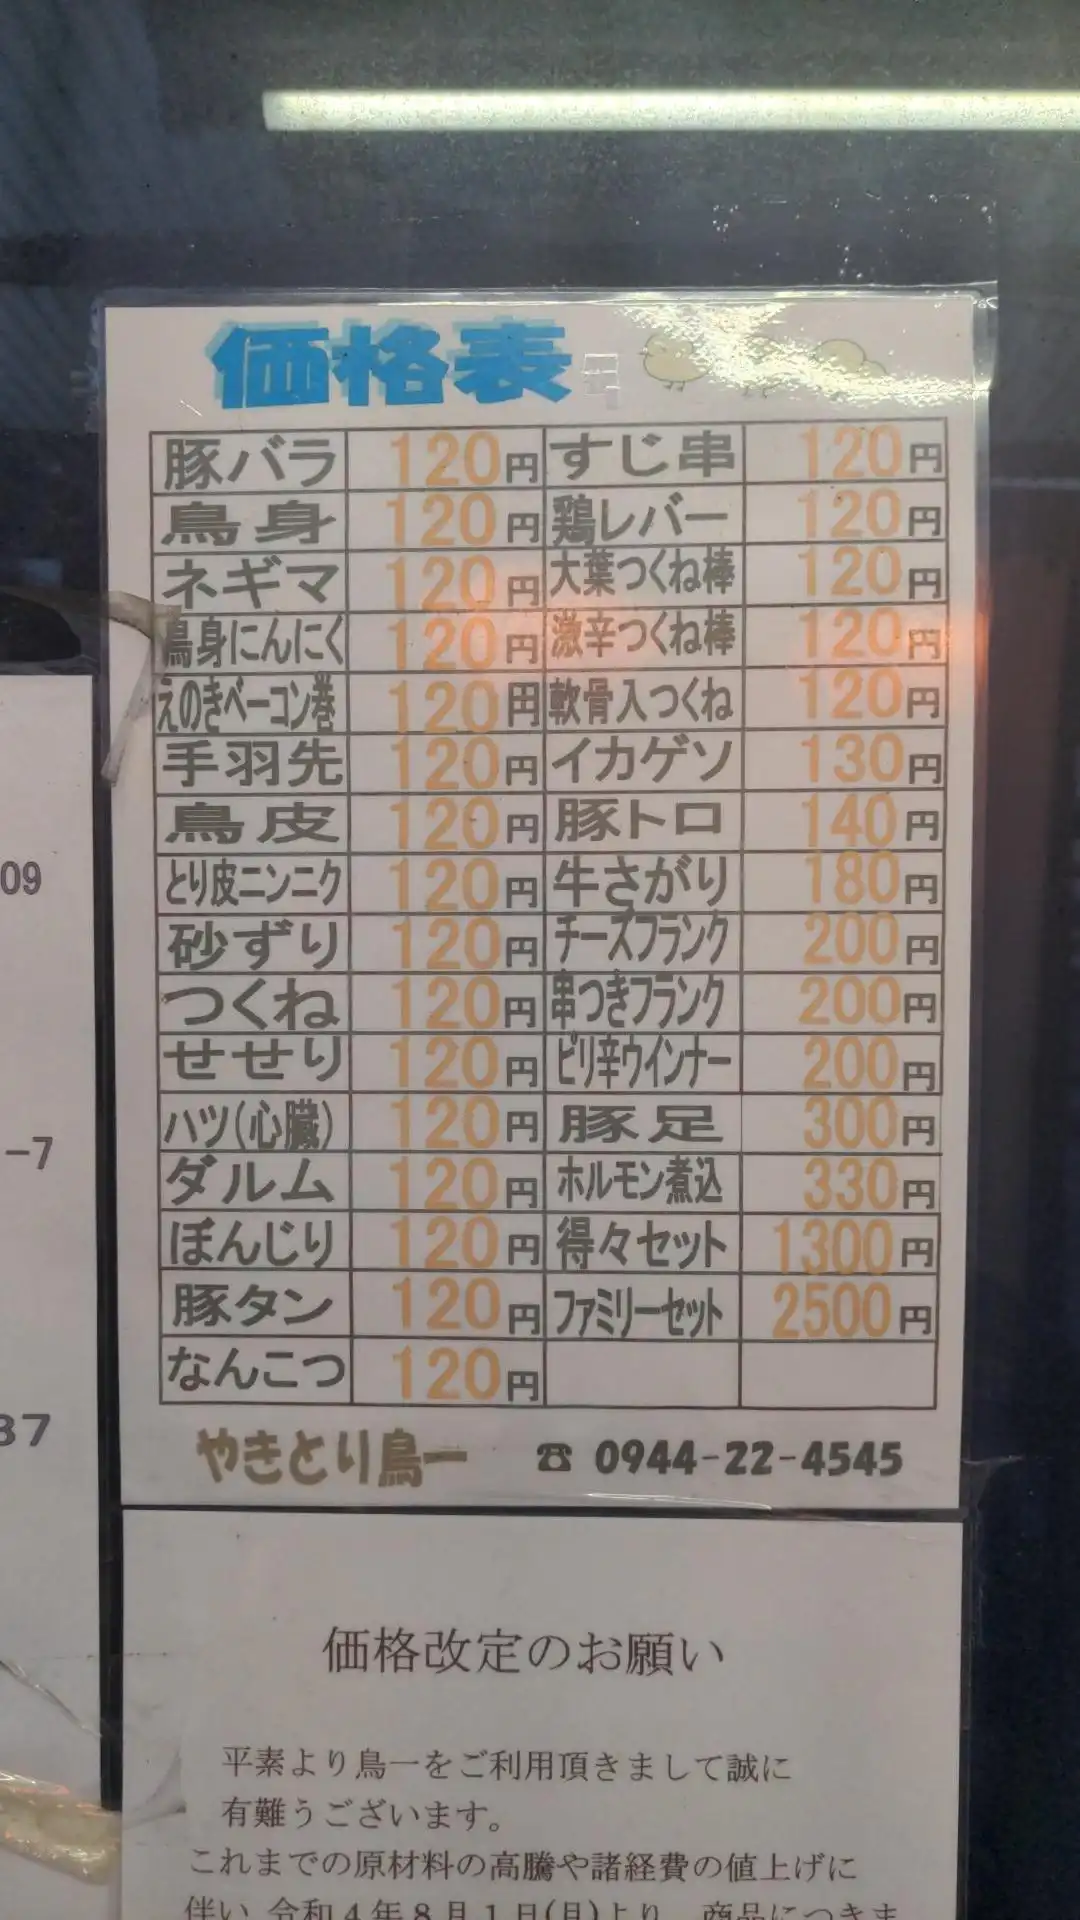 価格表
豚バラ 120円 すじ串 120円
鳥身 120円 鶏レバー 120円
ネギマ 120円 大葉つくね棒 120円
鳥身にんにく 120円 激辛つくね棒 120円
えのきベーコン巻 120円 軟骨入つくね 120円
手羽先 120円 イカゲソ 130円
鳥皮 120円 豚トロ 140円
とり皮ニンニク 120円 牛さがり 180円
砂ずり 120円 チーズフランク 200円
つくね 120円 串つきフランク 200円
せせり 120円 ピリ辛ウインナー 200円
ハツ(心臓) 120円 豚足 300円
ダルム 120円 ホルモン煮込 330円
ぼんじり 120円 得々セット 1300円
豚タン 120円 ファミリーセット 2500円
なんこつ 120円
やきとり鳥一 ☎ 0944-22-4545
09
-7
37
価格改定のお願い
平素より鳥一をご利用頂きまして誠に
有難うございます。
これまでの原材料の高騰や諸経費の値上げに
伴い 令和4年8月1日(月)より、商品につきま